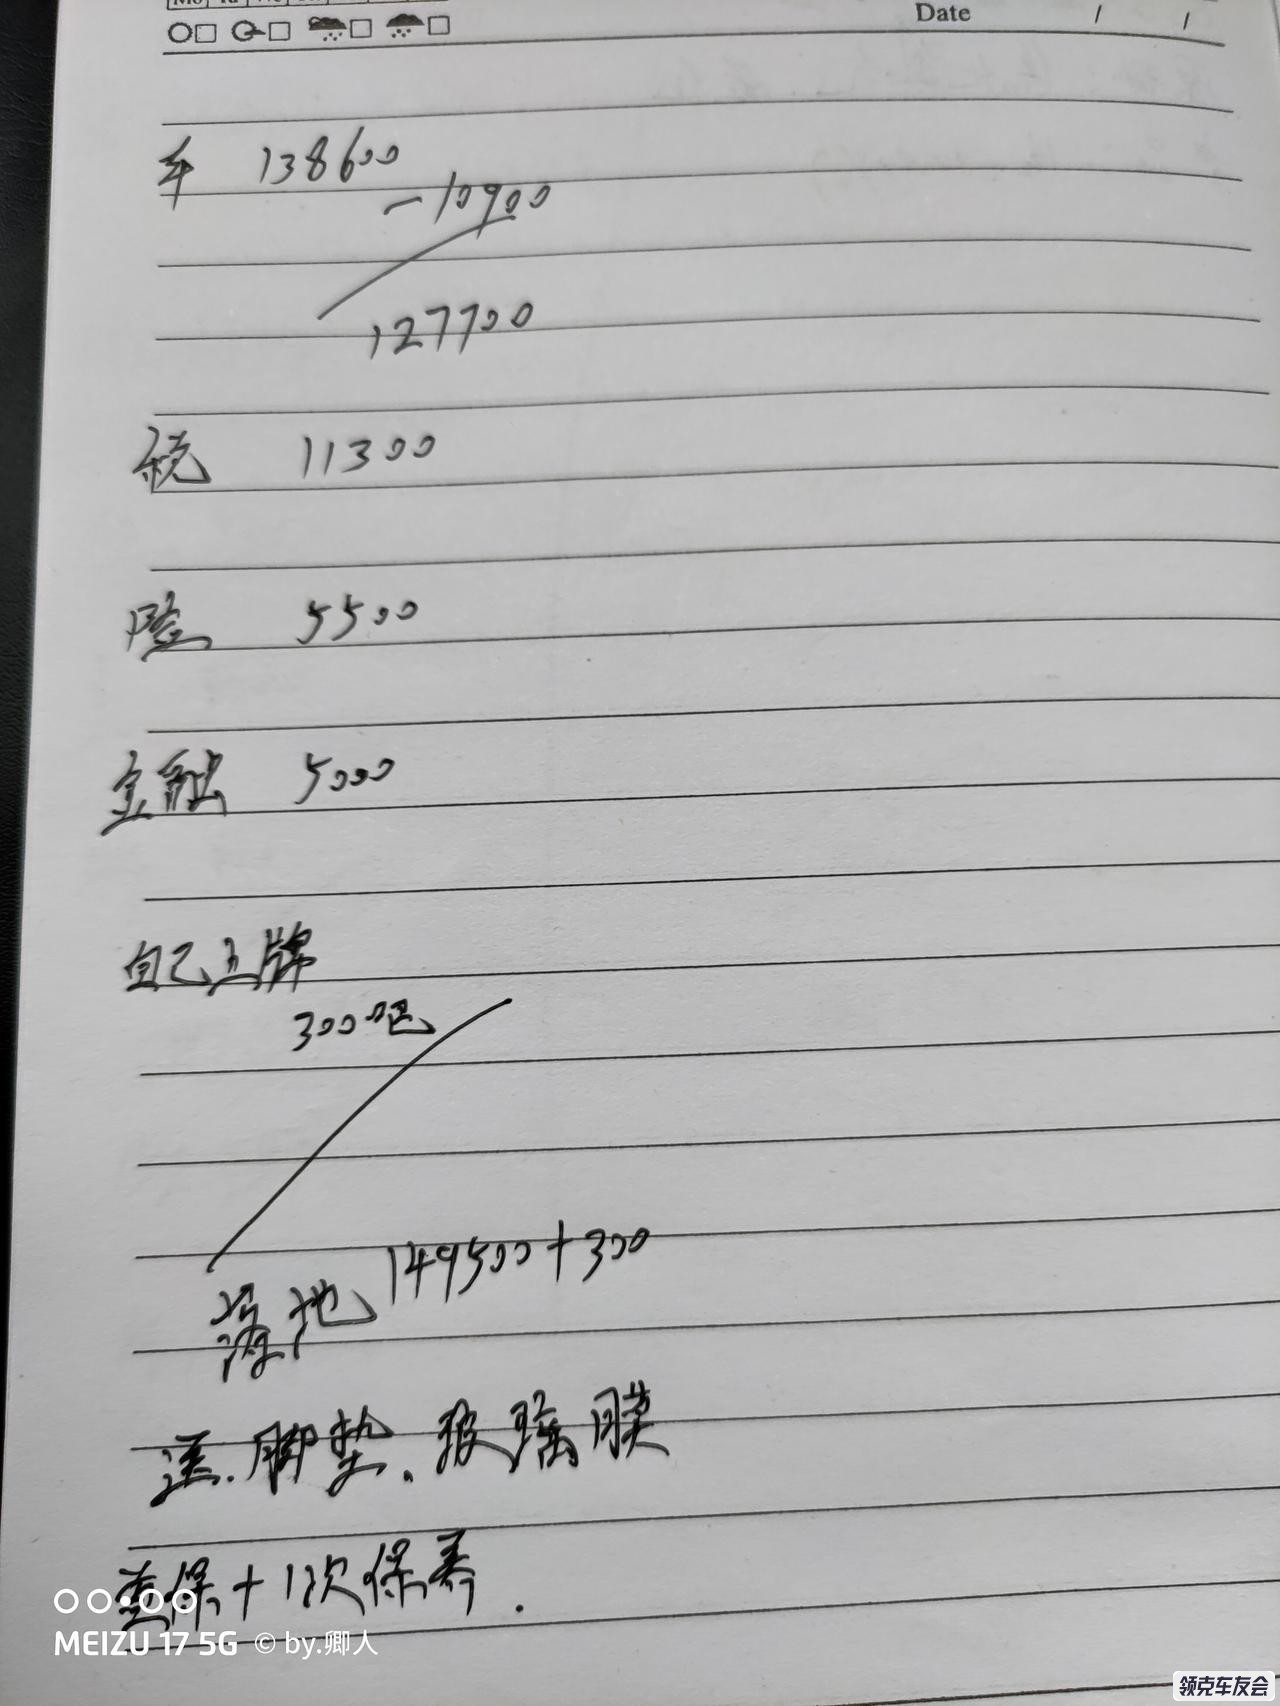 Date / /
车 138600
-10900
127700
税 11300
险 5500
金融 5000
自己上牌
300吧
落地 149500+300
送.脚垫.玻璃膜
首保+1次保养.
MEIZU 17 5G © by.卿人
领克车友会